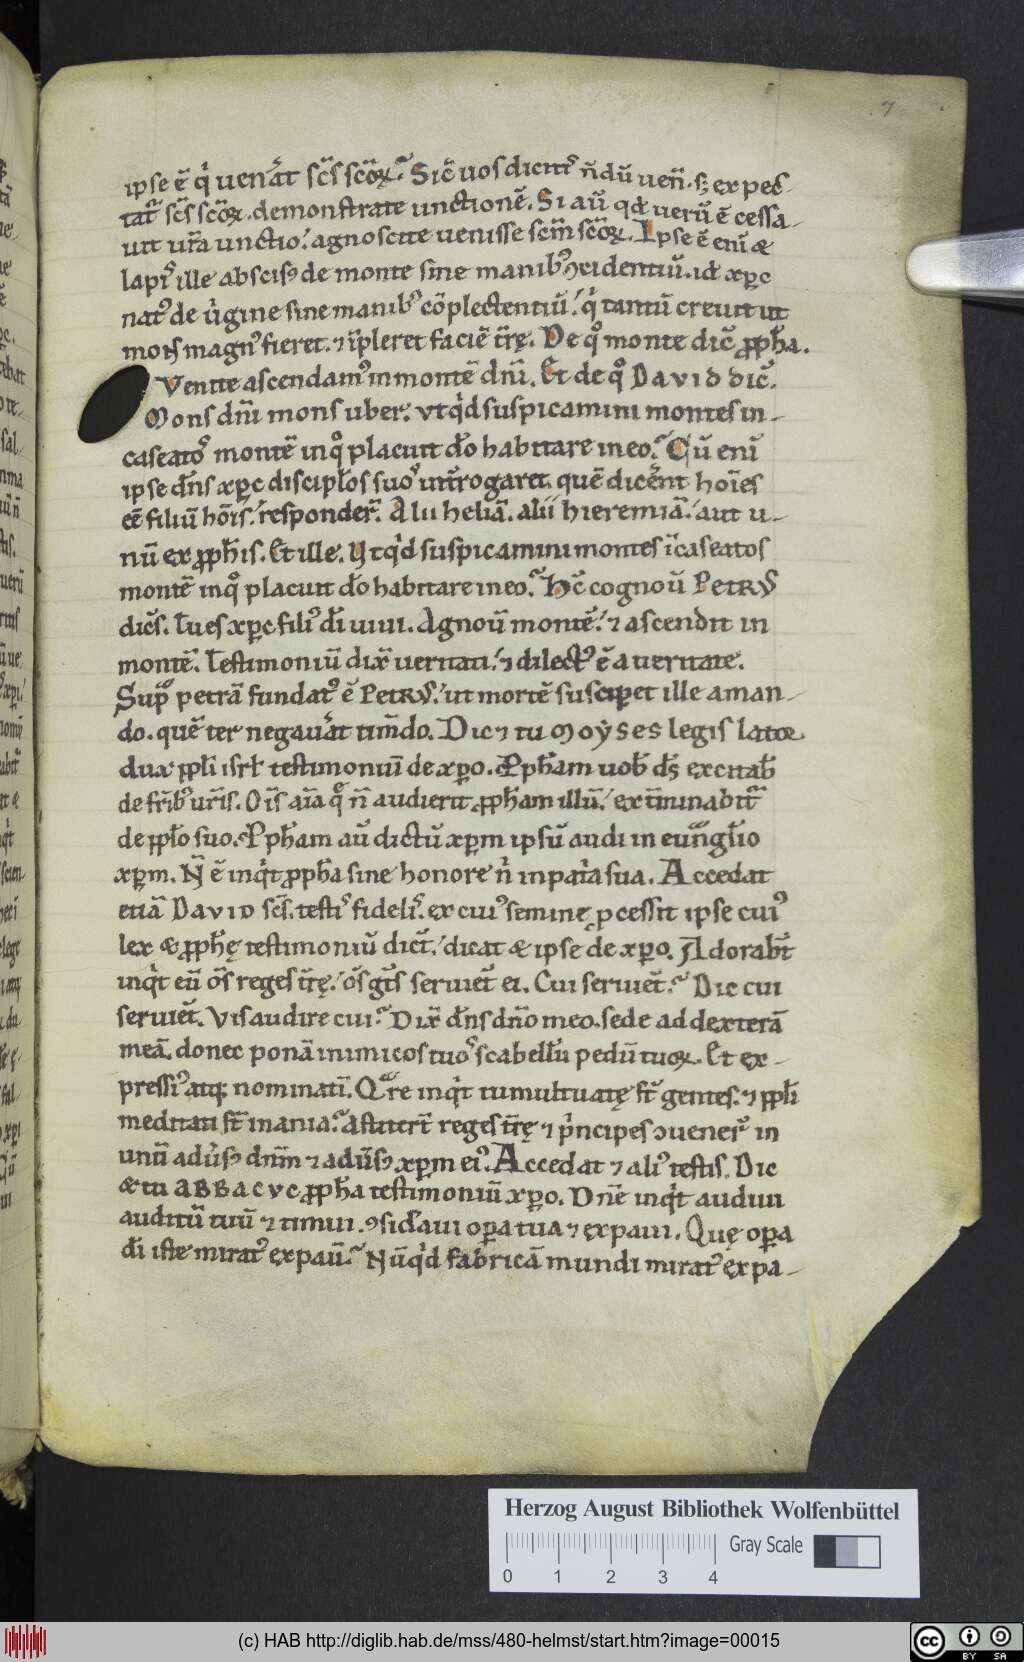 7
ipse ē q̇ uenȧt sc̄s sc̄oꝝ. Sic̄ uos dicitis n̄dū ueñ. sꝫ expec-
tat᷑ sc̄s sc̄oꝝ. demonstrate unctionē. Si aū qđ uerū ē cessa-
uit ur̄a unctio. agnoscite uenisse sc̄m sc̄oꝝ. Ipse ē enī &
lapi᷒ ille abscisꝰ de monte sine manibꝰ ꝯcidentiū. id xp̄c
natꝰ de u̇gine sine manibꝰ cōplectentiū. q̇ tantū creuit ut
mons magnꝰ fieret. ⁊ īpleret faciē tr̄ę. De qͦ monte dic̄ ꝓph̄a.
Venite ascendamꝰ in montē dn̄i. Et de qͦ DAVID dic̄.
Mons dn̄i mons uber. vtqͥd suspicamini montes in-
caseatoꝰ montē inqͦ placuit dō habitare in eo. Cū enī
ipse dn̄s xp̄c discipl̄os suoꝰ int̄rogaret. quē dicer̄nt hoīes
eē filiū hōis. responder̄. Alii heliā. alii hieremiā. aut u-
nū ex ꝓph̄is. Et ille. Vtqͥd suspicamini montes īcaseatos
montē inqͦ placuit dō habitare in eo. Hc̄ cognoū PETRVS
dic̄s. Tu es xp̄c filiꝰ dī uiui. Agnoū montē. ⁊ ascendit in
montē. Testimoniū dix̄ ueritati. ⁊ dilectꝰ ē a ueritate.
Sup̄ petrā fundatꝰ ē PETRVS. ut mortē susciperet ille aman-
do. quē ter negauȧt tim̄do. Dic ⁊ tu MOYSES legis lator
dux ppl̄i isrł testimoniū de xp̄o. Pph̄am uob̄ ds̄ excitab̄
de fr̄ibꝰ ur̄is. Oīs aīa q̄ n̄ audierit ꝓph̄am illū. ext̄minabit᷑
de ppl̄o suo. Pph̄am aū dictū xp̄m ipsū audi in euǹgl̄io
xp̄m. N̄ ē inqͥt ꝓph̄a sine honore nͥ in patͥa sua. Accedat
etiā DAVID sc̄s. testiꝰ fideliꝰ. ex cuiꝰ semine ꝓcessit ipse cuiꝰ
lex & ꝓph̄ę testimoniū dict̄. dicat & ipse de xp̄o. Adorabt̄
inqͥt eū ōs reges tr̄ę. ōs gt̄s seruiet̄ ei. Cui seruiet̄. Dic cui
seruiet̄. Vis audire cui. Dix̄ dn̄s dn̄o meo. sede ad dexterā
meā. donec ponā inimicos tuoꝰ scabellū pedū tuoꝝ. Et ex-
pressiꝰ atqꝫ nominatī. Qͣre inqͥt tumultuatę st̄ gentes. ⁊ ppl̄i
meditati st̄ inania. Astitert̄ reges tr̄ę ⁊ pͥncipes ꝯuenerꝰ in
unū adu̇sꝰ dn̄m ⁊ adu̇sꝰ xp̄m eiꝰ. Accedat ⁊ aliꝰ testis. Dic
& tu ABBACVC ꝓph̄a testimoniū xp̄o. Dn̄e inqͥt audiui
auditū tuū ⁊ timui. ꝯsid̄aui oꝑa tua ⁊ expaui. Quę oꝑa
dī iste miratꝰ expaū. Nūqͥd fabricā mundi miratꝰ expa-
Herzog August Bibliothek Wolfenbüttel
Gray Scale
0 1 2 3 4
(c) HAB http://diglib.hab.de/mss/480-helmst/start.htm?image=00015
cc BY SA